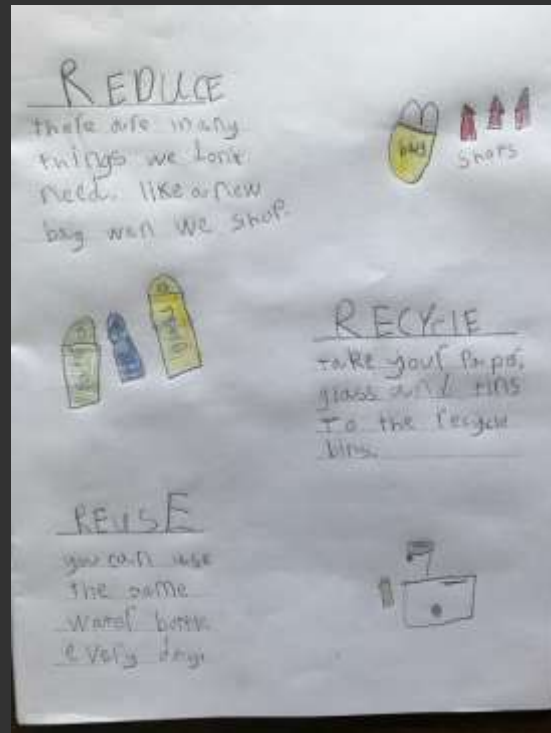 REDUCE
there are many
things we dont
need. like a new
bag wen we shop.
bag
shops
RECYclE
take your papr,
glass and tins
To the recycle
bins.
REUSE
you can use
the same
water bottle
every day.